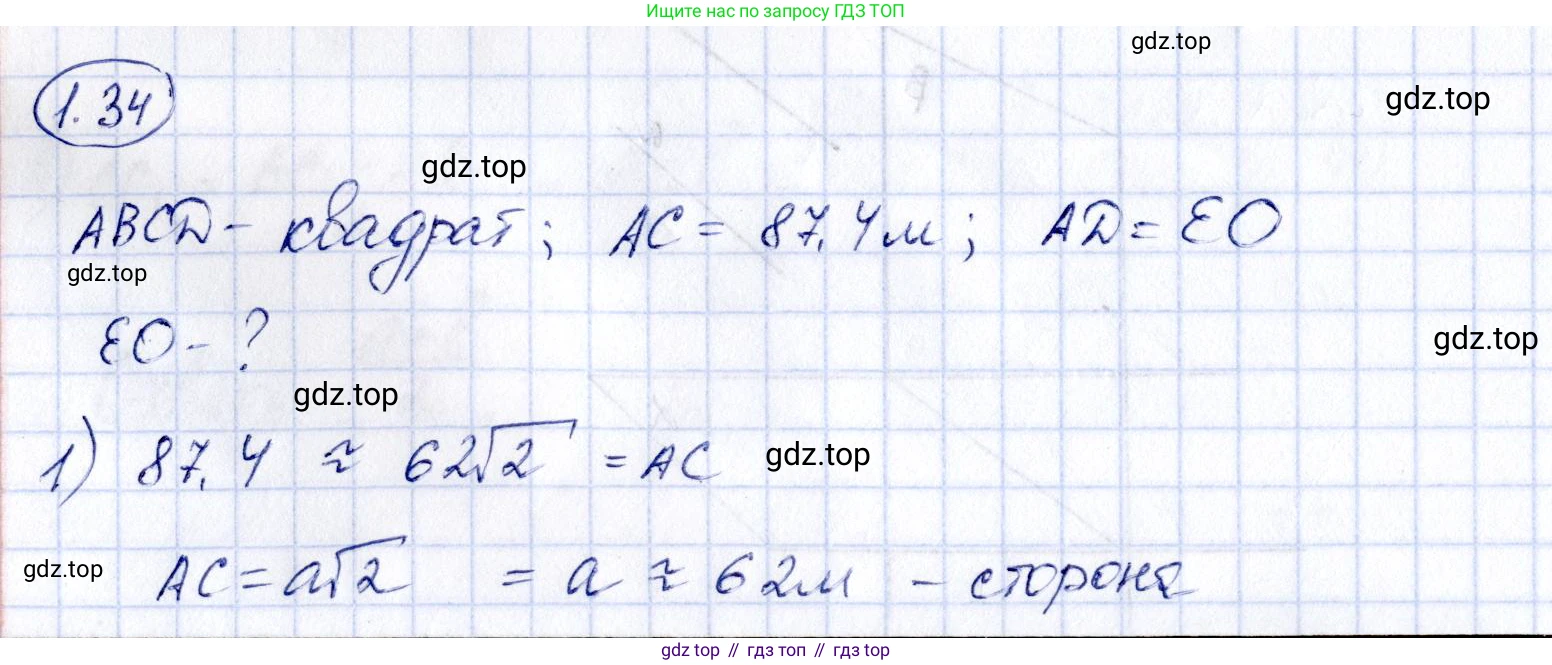 Ищите нас по запросу ГДЗ ТОП
gdz.top
1.34
gdz.top
gdz.top
ABCD - квадрат; AC = 87,4м; AD = EO
gdz.top
EO - ?
gdz.top
gdz.top
1) 87,4 ≈ 62√2 = AC
gdz.top
gdz.top
AC = a√2 = a ≈ 62м - сторона
gdz top // гдз топ // gdz top